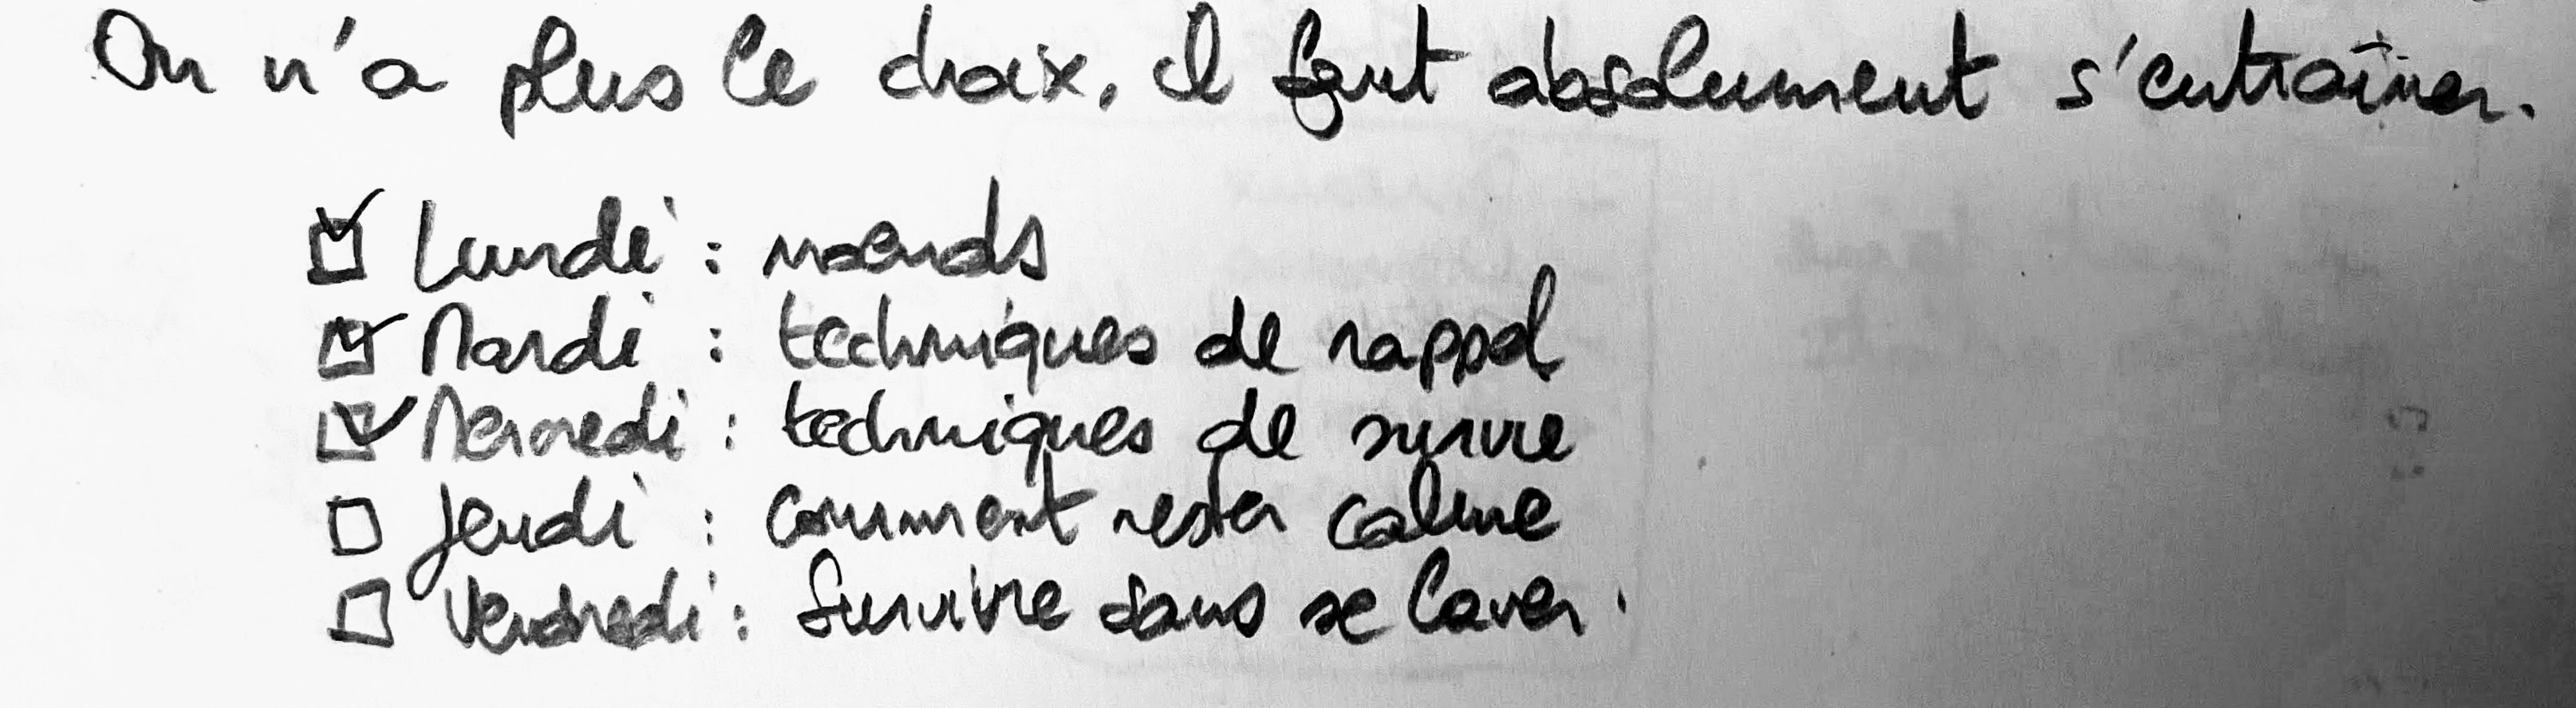 On n'a plus le choix, il faut absolument s'entraîner.
☑ Lundi : nœuds
☑ Mardi : techniques de rappel
☑ Mercredi : techniques de survie
☐ Jeudi : comment rester calme
☐ Vendredi : Survivre sans se laver.